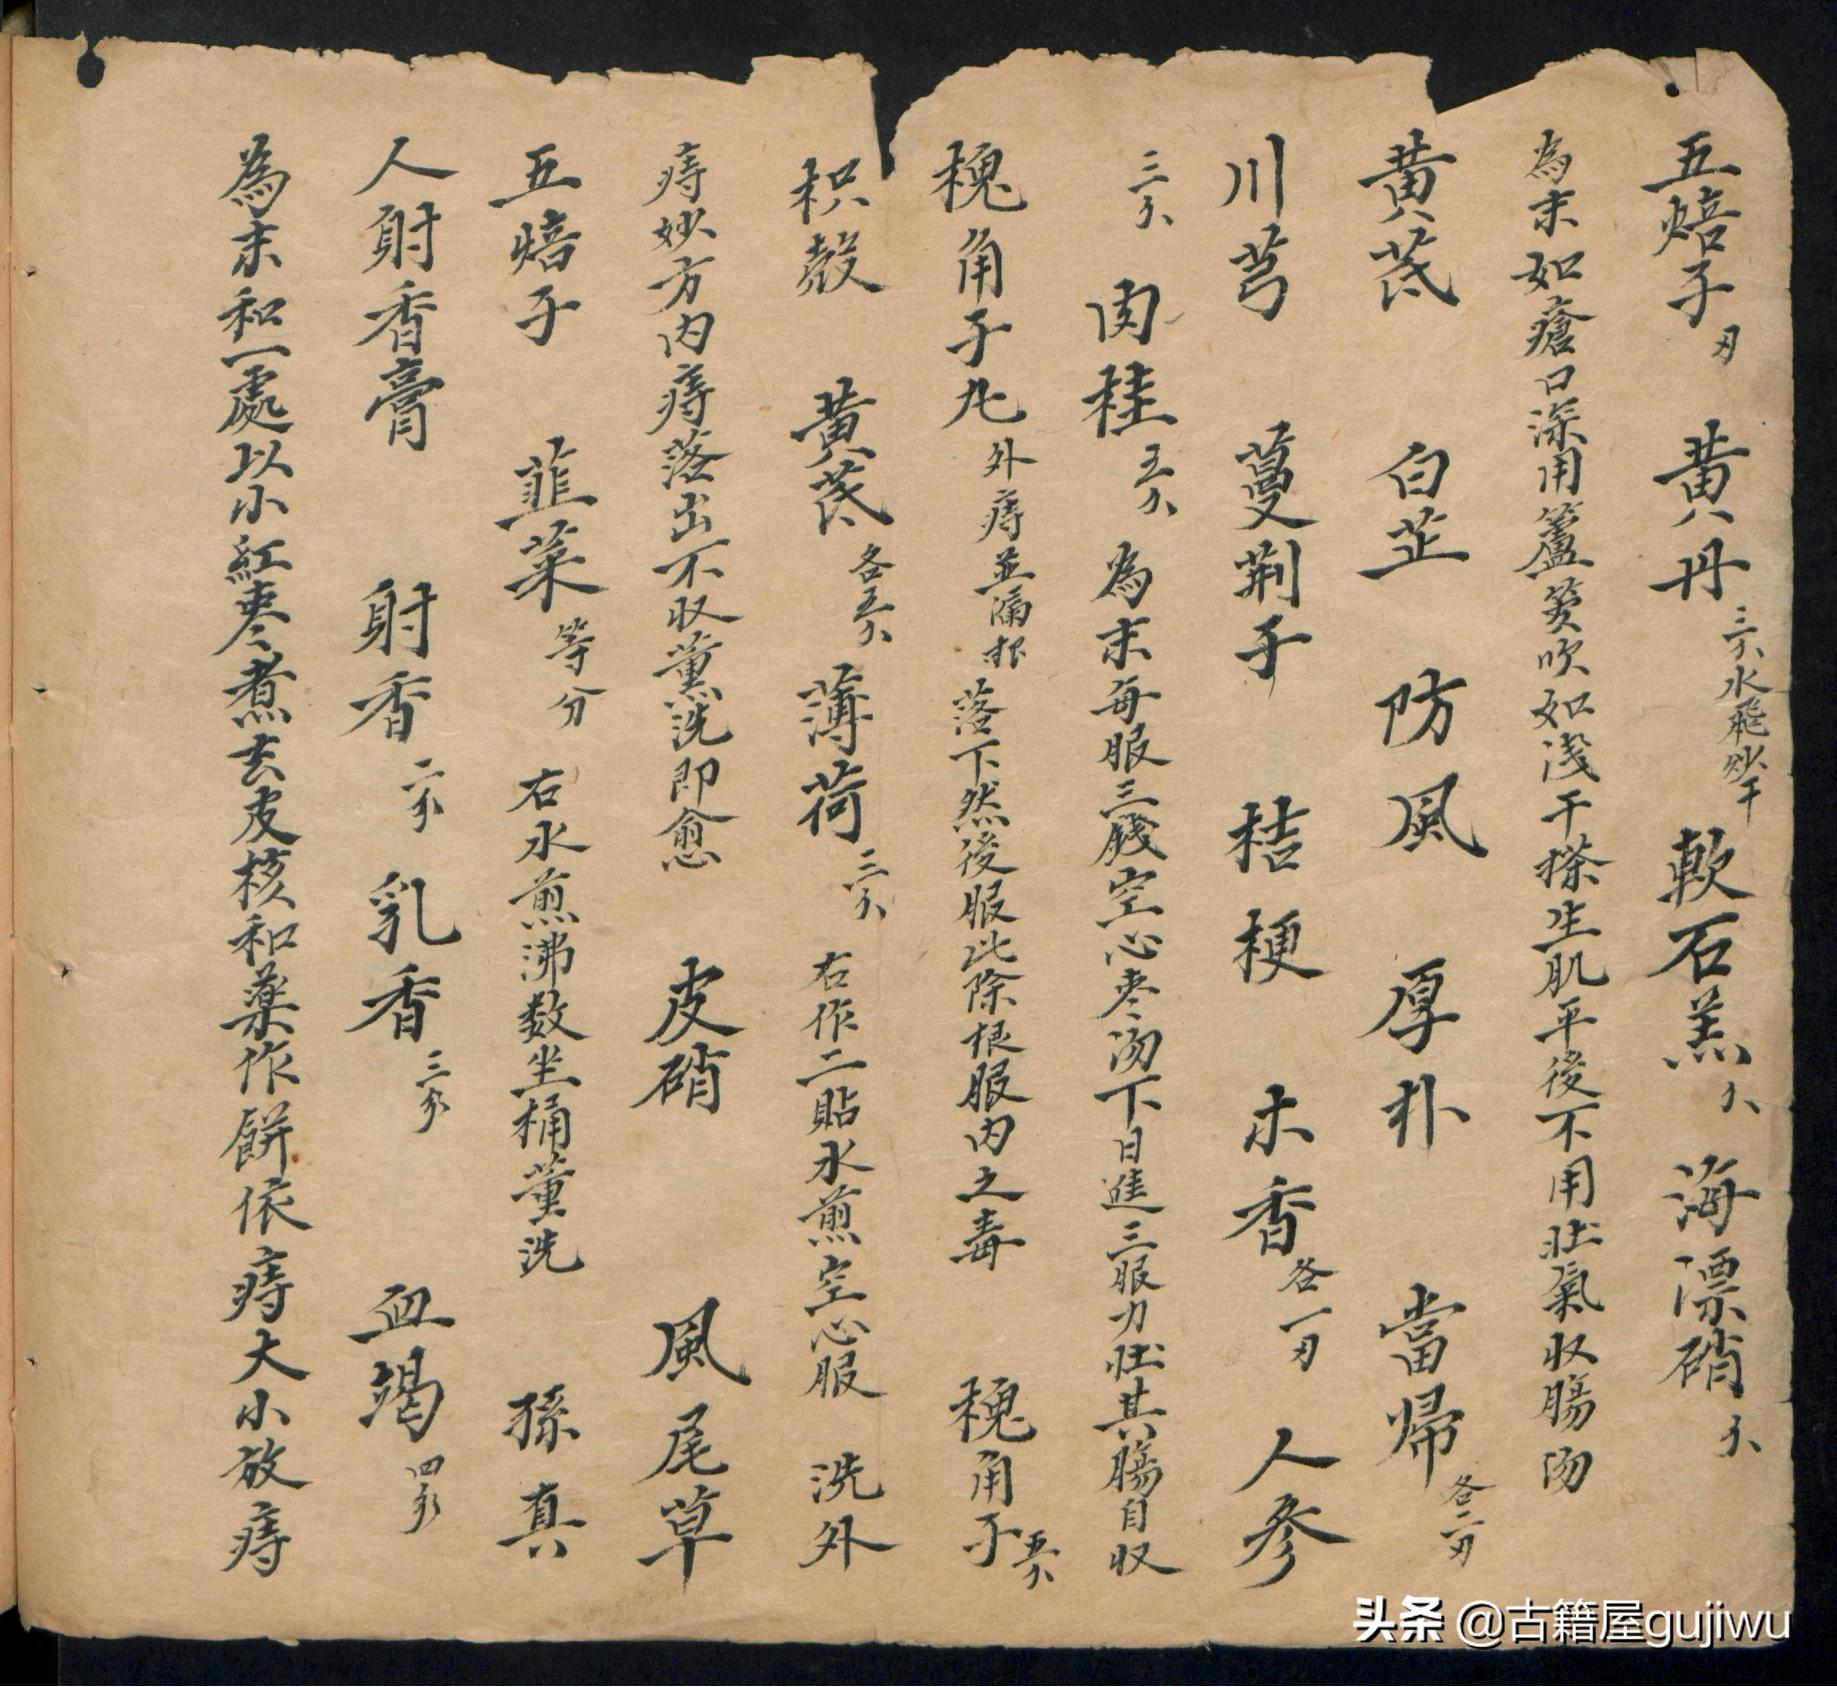 五焙子 刄 黄丹 三个水飛炒干 軟石羔 个 海漂硝 个
為末如瘡口深用蘆筒吹如淺干搽生肌平後不用壯氣收腸汤
黄茋 白芷 防風 厚朴 當帰 各二刄
川芎 蔓荆子 桔梗 木香 各一刄 人參
三个 肉桂 五个 為末每服三錢空心枣汤下日進三服力壯其腸自収
槐角子九 外痔並漏根落下然後服此除根服内之毒 槐角子 五个
枳殻 黄茋 各五个 薄荷 三个 右作二貼水煎空心服 洗外
痔妙方内痔落出不収薫洗即愈 皮硝 風尾草
五焙子 韮菜 等分 右水煎沸数坐桶薫洗 孫真
人射香膏 射香 二分 乳香 三分 血竭 四分
為末和一處以小紅枣煮去皮核和藥作餅依痔大小放痔
头条 @古籍屋gujiwu